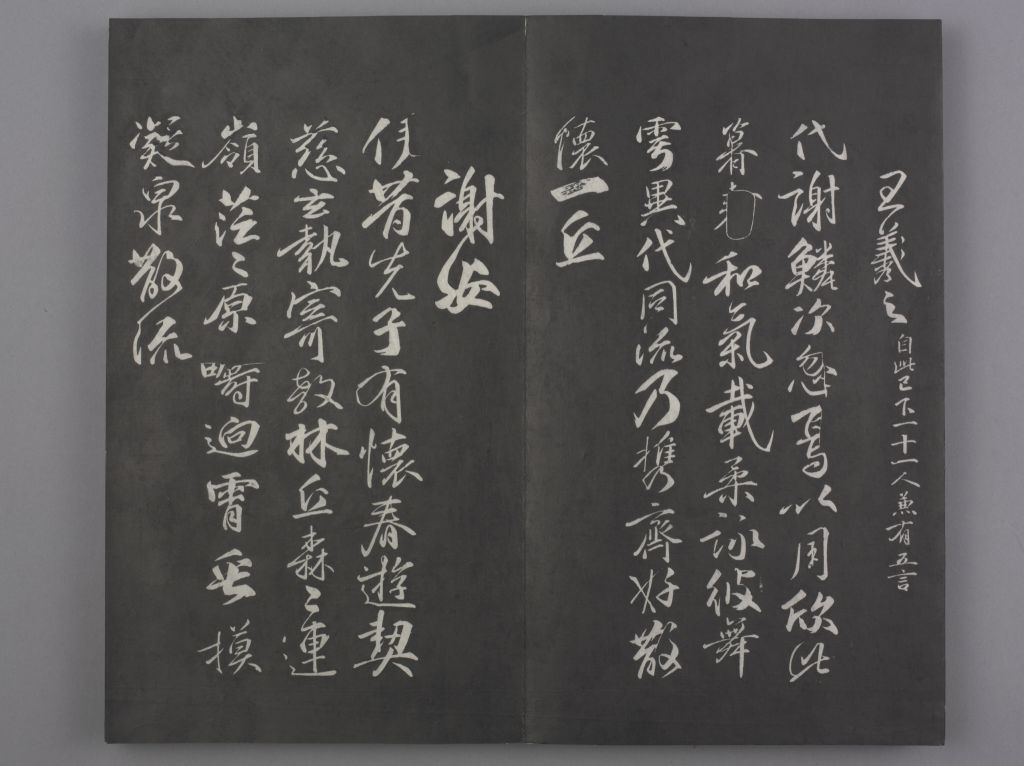 王羲之 自此已下一十一人兼有五言
代謝鱗次忽焉以周欣此
暮春和氣載柔詠彼舞
雩異代同流乃攜齊好散
懷一丘
謝安
伊昔先子有懷春遊契
慈玄執寄敖林丘森〻連
嶺茫〻原疇迥霄垂
凝泉散流